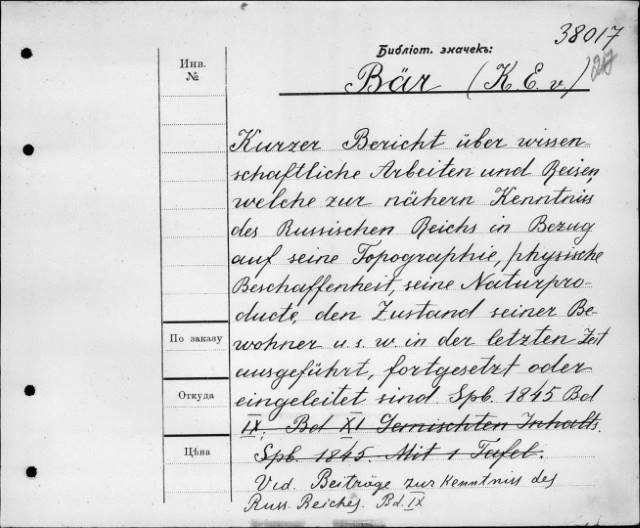 38017
Библіот. значекъ:
Bär (K. E. v.)
Инв.
№
Kurzer Bericht über wissen
schaftliche Arbeiten und Reisen,
welche zur nähern Kenntniss
des Russischen Reichs in Bezug
auf seine Topographie, physische
Beschaffenheit, seine Naturpro-
ducte, den Zustand seiner Be-
По заказу
wohner u. s. w. in der letzten Zeit
ausgeführt, fortgesetzt oder
Откуда
eingeleitet sind. Spb. 1845 Bd
IX. Bd XI Gemischten Inhalts.
Цѣна
Spb. 1845. Mit 1 Tafel.
Vid. Beiträge zur Kenntniss des
Russ. Reiches. Bd. IX